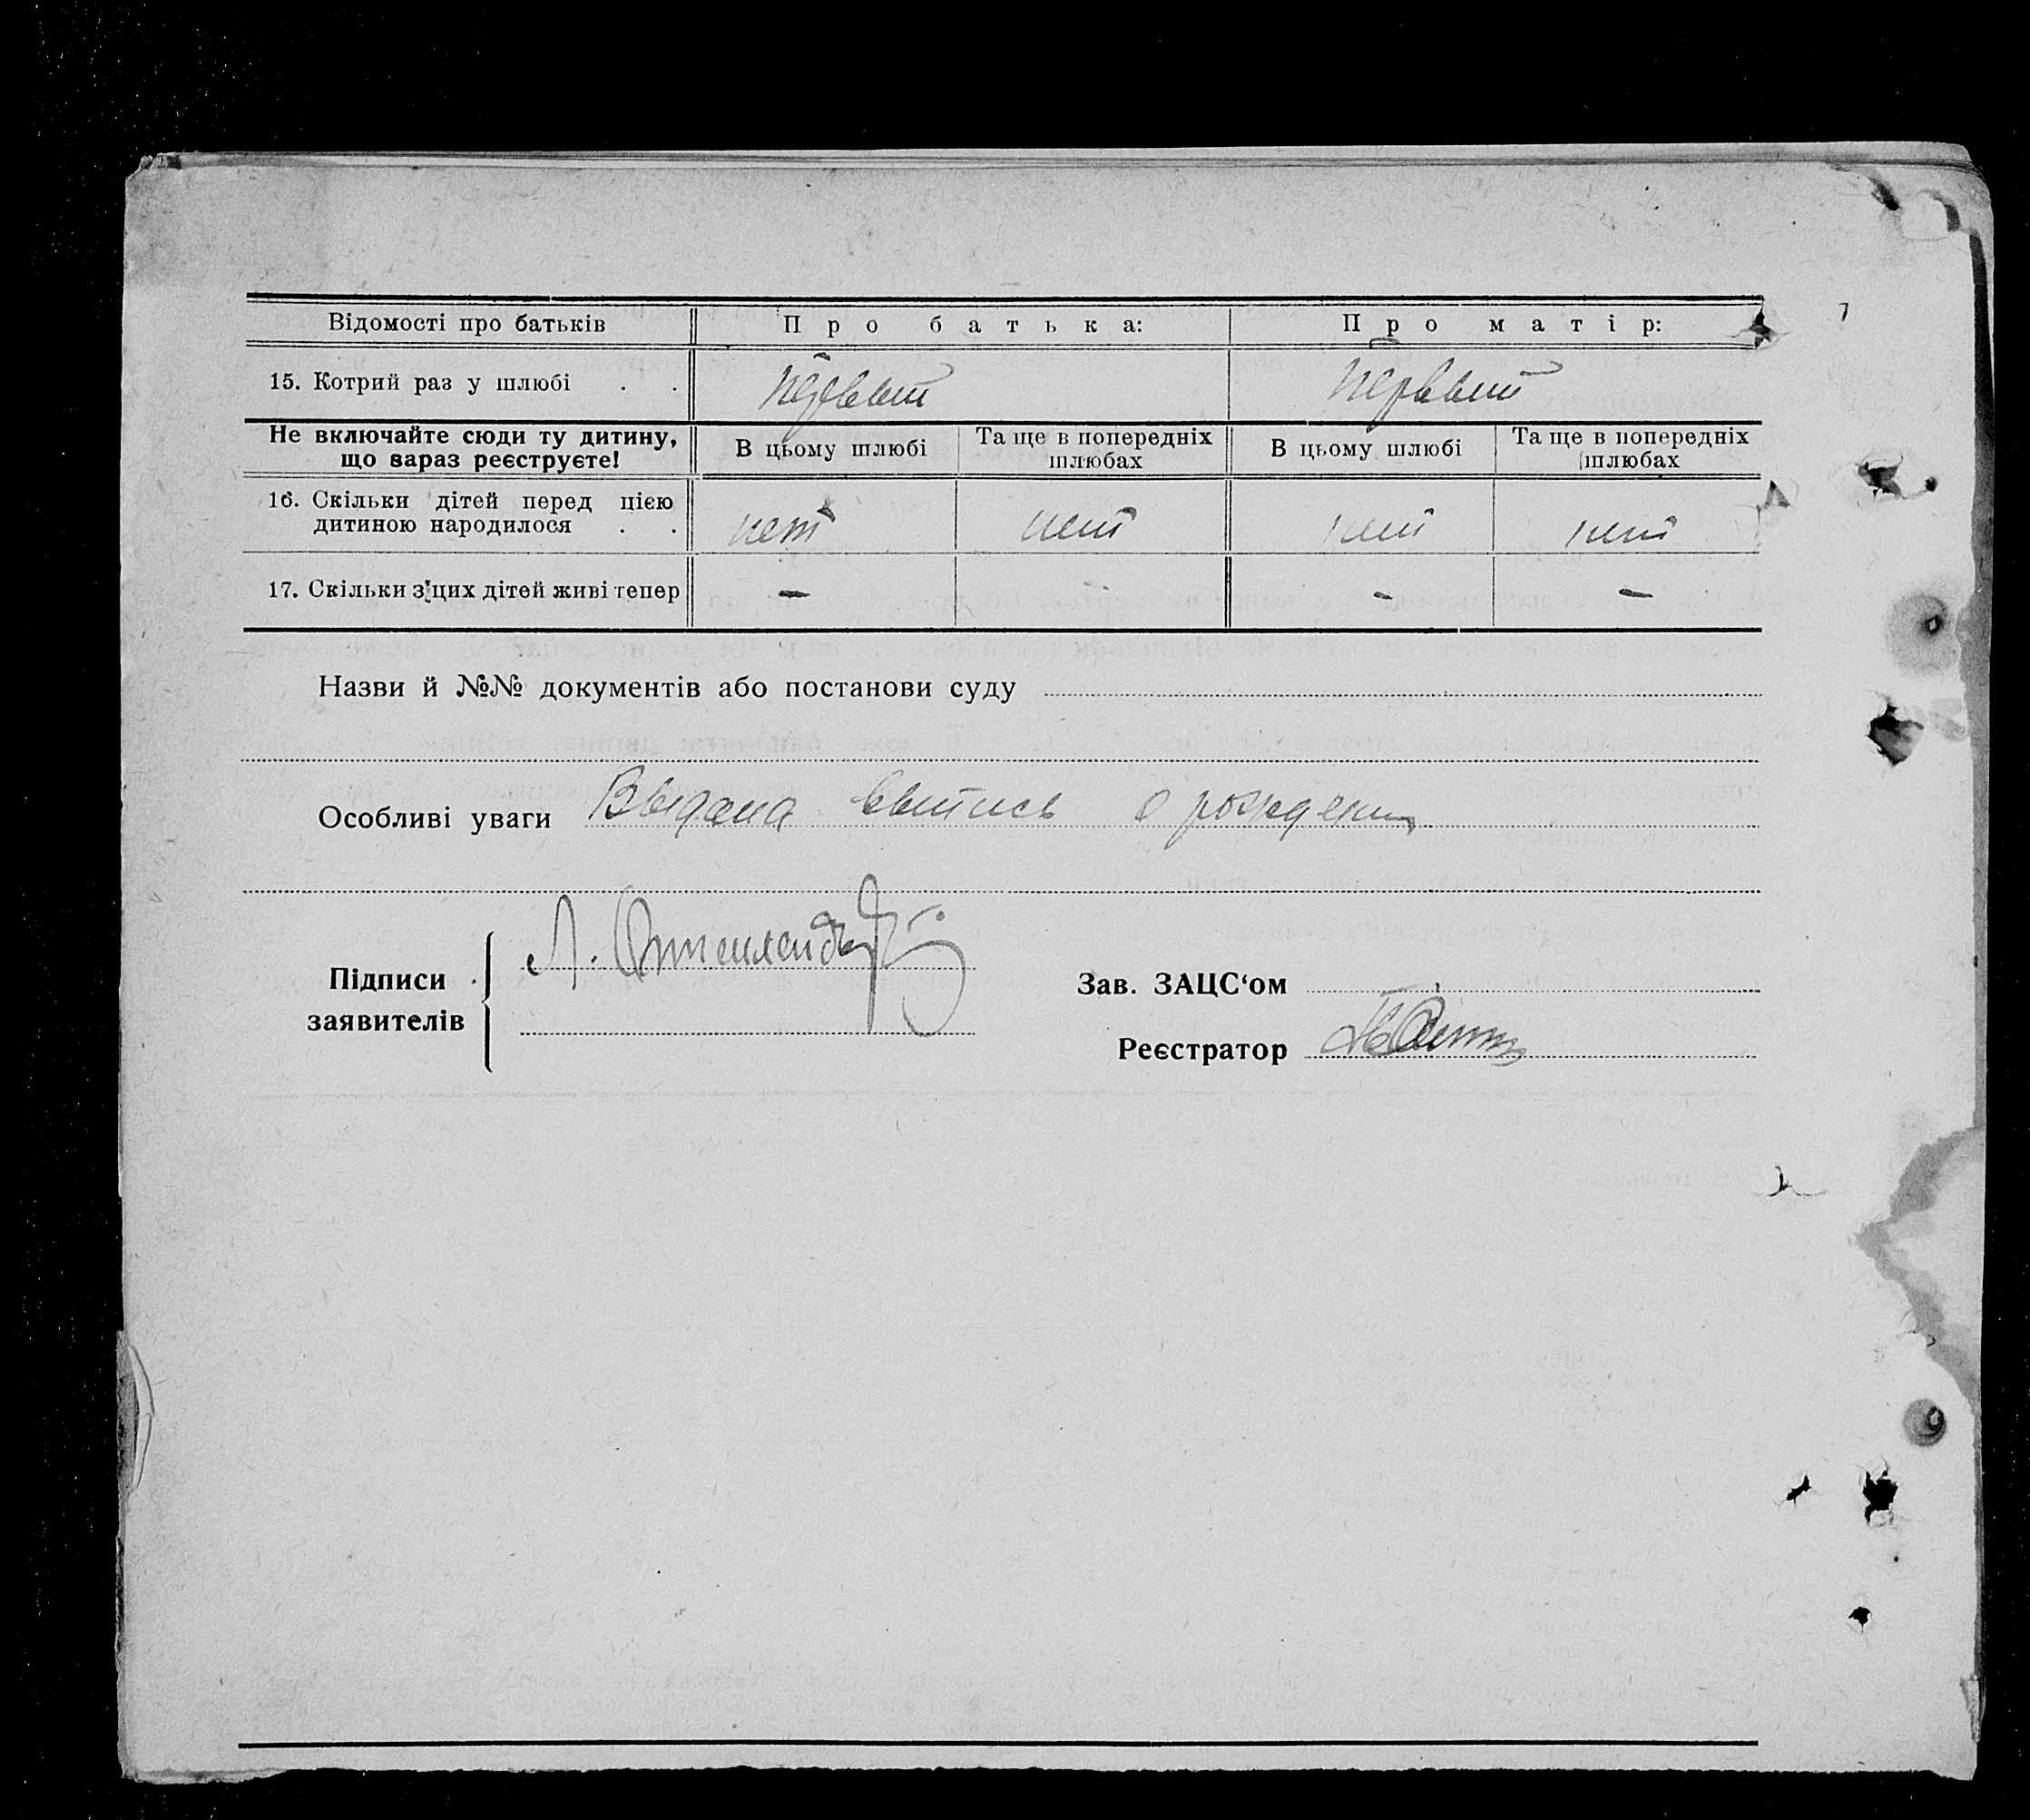 Відомості про батьків Про батька: Про матір:
15. Котрий раз у шлюбі . . первый первый
Не включайте сюди ту дитину, що зараз реєструєте! В цьому шлюбі Та ще в попередніх шлюбах В цьому шлюбі Та ще в попередніх шлюбах
16. Скільки дітей перед цією
дитиною народилося . . нет нет нет нет
17. Скільки з цих дітей живі тепер — - — —
Назви й №№ документів або постанови суду
Особливі уваги Выдана выпись о рождении
Підписи
заявителів
Л.
Зав. ЗАЦС‘ом
Реєстратор